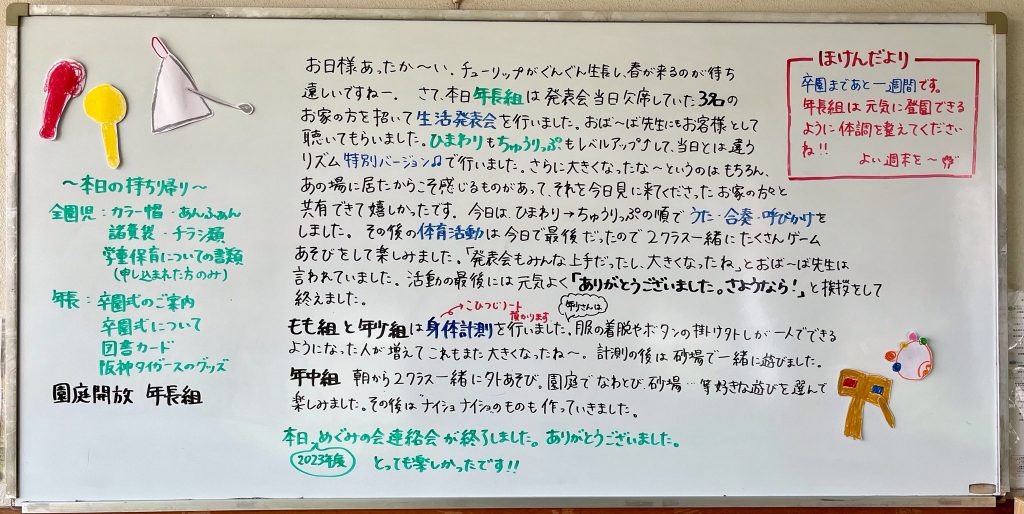 ～本日の持ち帰り～
全園児：カラー帽・あんふぁん
諸費袋・チラシ類
学童保育についての書類
（申し込まれた方のみ）
年長：卒園式のご案内
卒園式について
図書カード
阪神タイガースのグッズ
園庭開放 年長組
お日様あったか～い．チューリップがぐんぐん生長し、春が来るのが待ち
遠しいですねー． さて、本日年長組は発表会当日欠席していた3名の
お家の方を招いて生活発表会を行いました。おば～ば先生にもお客様として
聴いてもらいました。ひまわりもちゅうりっぷもレベルアップ↑して、当日とは違う
リズム特別バージョン♫で行いました。さらに大きくなったな～というのはもちろん、
あの場に居たからこそ感じるものがあって、それを今日見に来てくださったお家の方々と
共有できて嬉しかったです。今日は、ひまわり→ちゅうりっぷの順でうた・合奏・呼びかけを
しました。その後の体育活動は今日で最後だったので2クラス一緒にたくさんゲーム
あそびをして楽しみました。「発表会もみんな上手だったし、大きくなったね」とおば～ば先生は
言われていました。活動の最後には元気よく「ありがとうございました。さようなら！」と挨拶をして
終えました。
→こひつじノート
預かります
年少さんは
もも組と年少組は身体計測を行いました。服の着脱やボタンの掛け外しが一人でできる
ようになった人が増えてこれもまた大きくなったね～。計測の後は砂場で一緒に遊びました。
年中組 朝から2クラス一緒に外あそび。園庭でなわとび、砂場…等好きな遊びを選んで
楽しみました。その後は"ナイショナイショのものも作っていきました。
本日、めぐみの会連絡会が終了しました。ありがとうございました。
2023年度
とっても楽しかったです!!
ほけんだより
卒園まであと一週間です。
年長組は元気に登園できる
ように体調を整えてください
ね!!
よい週末を～